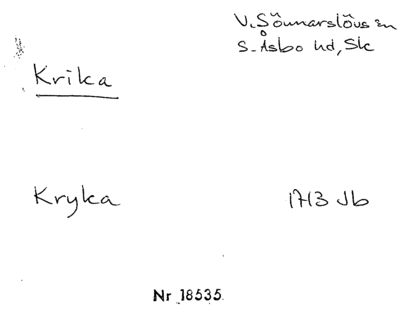 V. Sönnarslövs sn
S. Åsbo hd, Sk
Krika
Kryka 1713 Jb
Nr 18535